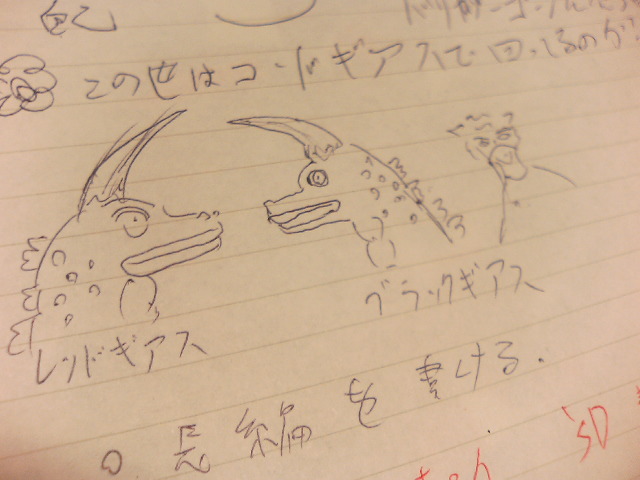 自己
この世はコードギアスで回ってるのか?
レッドギアス
ブラックギアス
長編を書ける.